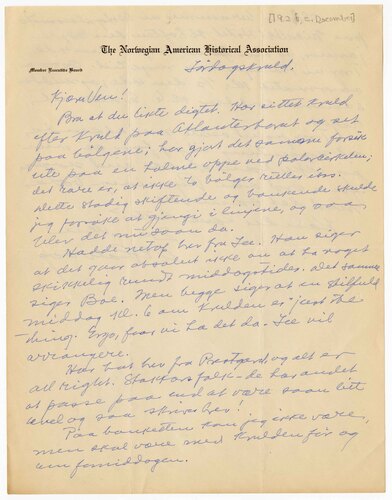 [192?, c. December]
The Norwegian American Historical Association
Member Executive Board
Lördagskveld.
Kjære Ven!
Bra at du likte digtet. Har sittet kveld
efter kveld paa Atlanterhavet og set
paa bölgene; har gjort det samme forsök
ute paa en holme oppe ved Polarcirkelen;
det rare er, at ikke to bölger rulles ens.
Dette stadig skiftende og bankende skulde
jeg forsöke at gjengi i linjene, og saa
blev det
Hadde netop brev fra Lee. Han siger
at det gaar absolut ikke an at ha noget
skikkelig rundt middagstider. Det samme
siger Boe. Men begge siger at en stilfuld
middag kl. 6 om kvelden er "just the
thing". Ergo, faar vi ha det da. Lee vil
arrangere.
Har hat brev fra og alt er
all right. Stakkars folk - de har andet
at passe paa end at være saan litt
level og saa skrive brev!
Paa banketten kan jeg ikke være,
men skal være med kvelden för og
om formiddagen.